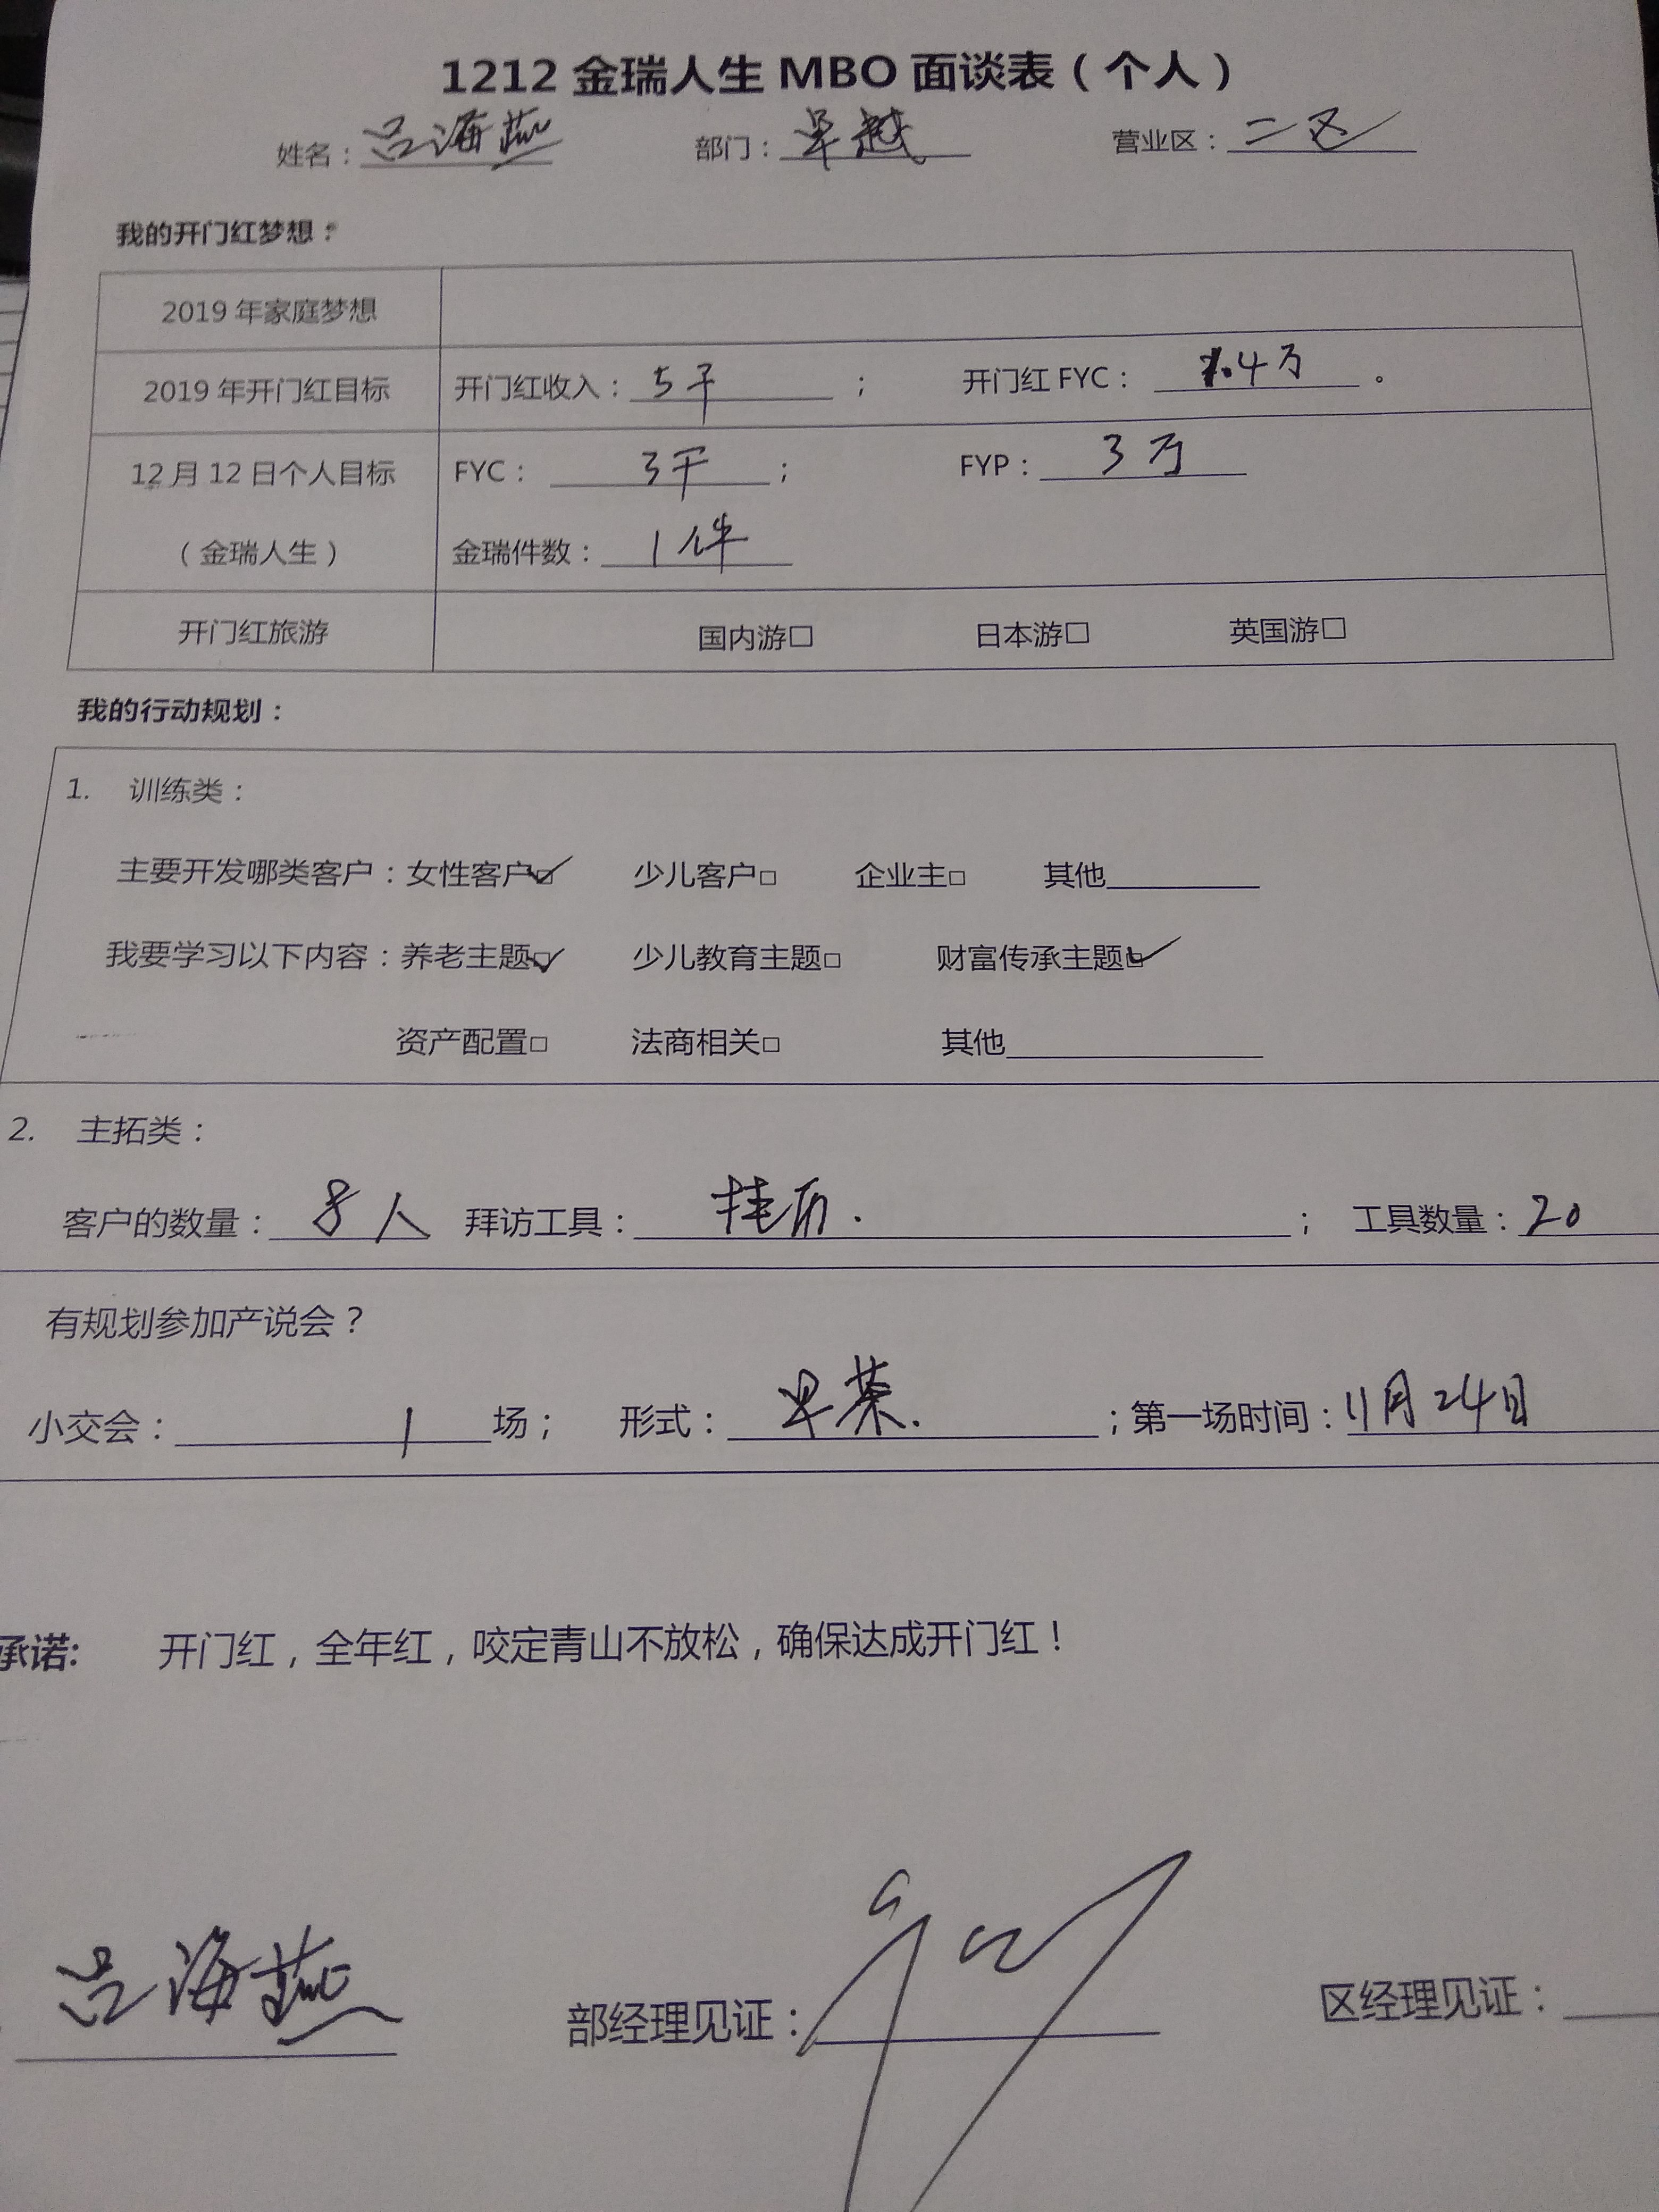 1212 金瑞人生 MBO 面谈表（个人）
姓名：吕海燕 部门：卓越 营业区：二区
我的开门红梦想：
2019 年家庭梦想
2019 年开门红目标 开门红收入：5千； 开门红 FYC：1.4万。
12 月 12 日个人目标 FYC：3千； FYP：3万
（金瑞人生） 金瑞件数：1件
开门红旅游 国内游□ 日本游□ 英国游□
我的行动规划：
1. 训练类：
主要开发哪类客户：女性客户☑ 少儿客户□ 企业主□ 其他
我要学习以下内容：养老主题☑ 少儿教育主题□ 财富传承主题☑
资产配置□ 法商相关□ 其他
2. 主拓类：
客户的数量：8人 拜访工具：挂历.； 工具数量：20
有规划参加产说会？
小交会：1场； 形式：早茶.；第一场时间：11月24日
承诺: 开门红，全年红，咬定青山不放松，确保达成开门红！
吕海燕 部经理见证： 区经理见证：